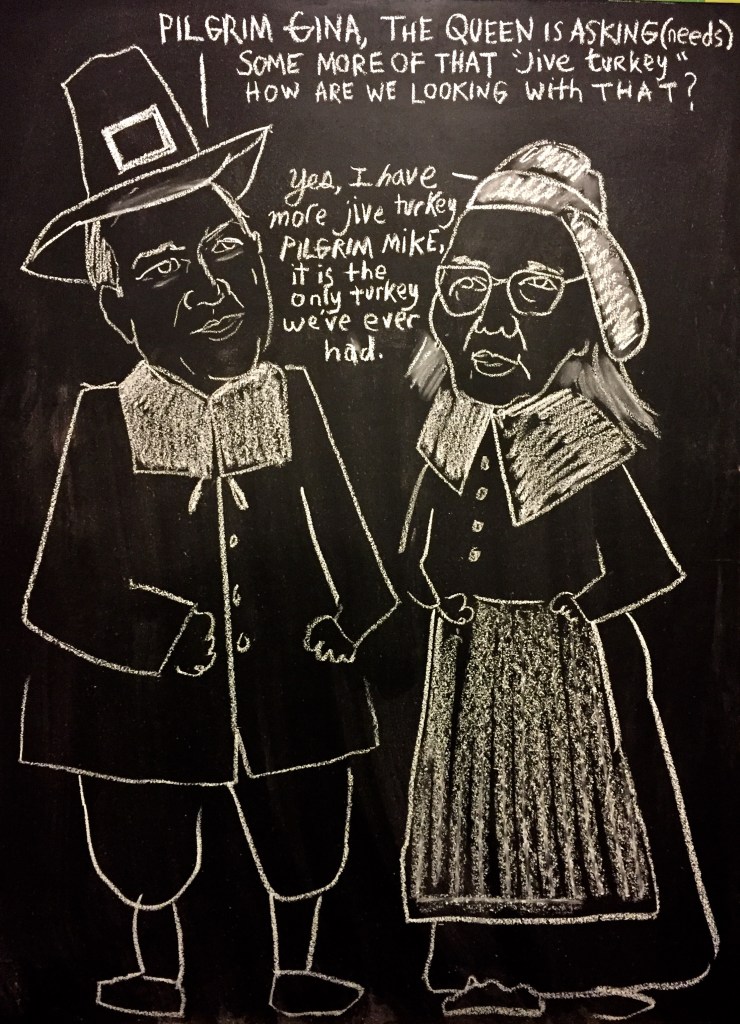 PILGRIM GINA, THE QUEEN IS ASKING(needs)
SOME MORE OF THAT "Jive turkey"
HOW ARE WE LOOKING With THAT?
Yes, I have
more jive turkey
PILGRIM MIKE,
it is the
only turkey
we've ever
had.